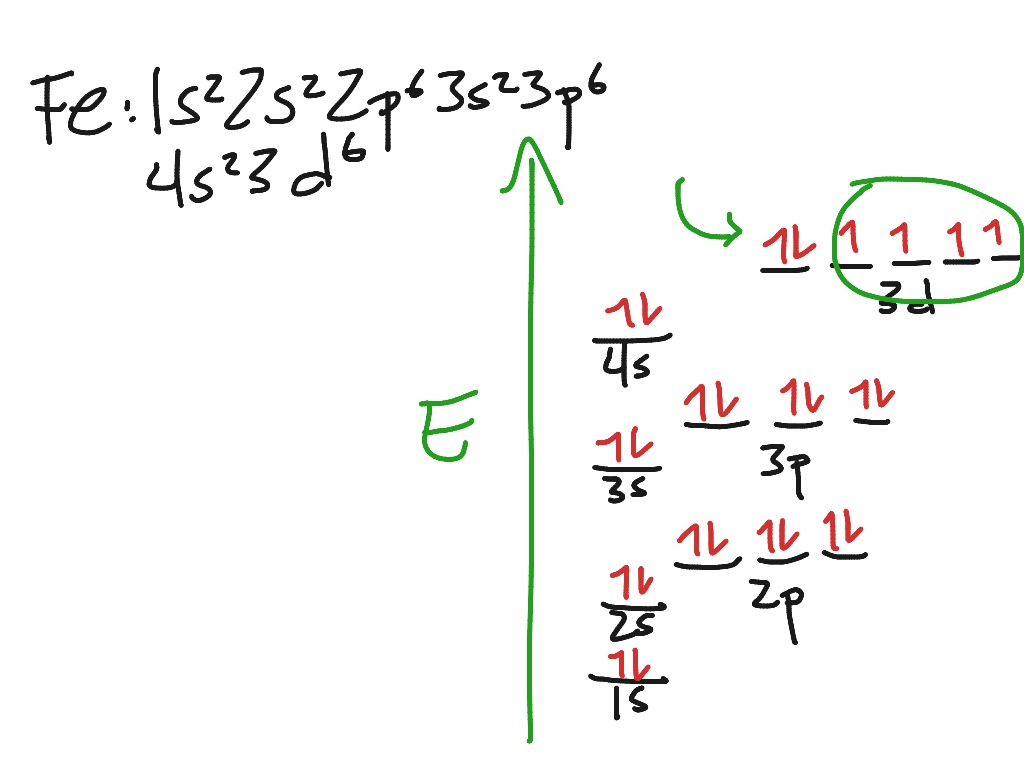 Fe: 1s²2s²2p⁶3s²3p⁶
4s²3d⁶
3d
4s
E
3p
3s
2p
2s
1s